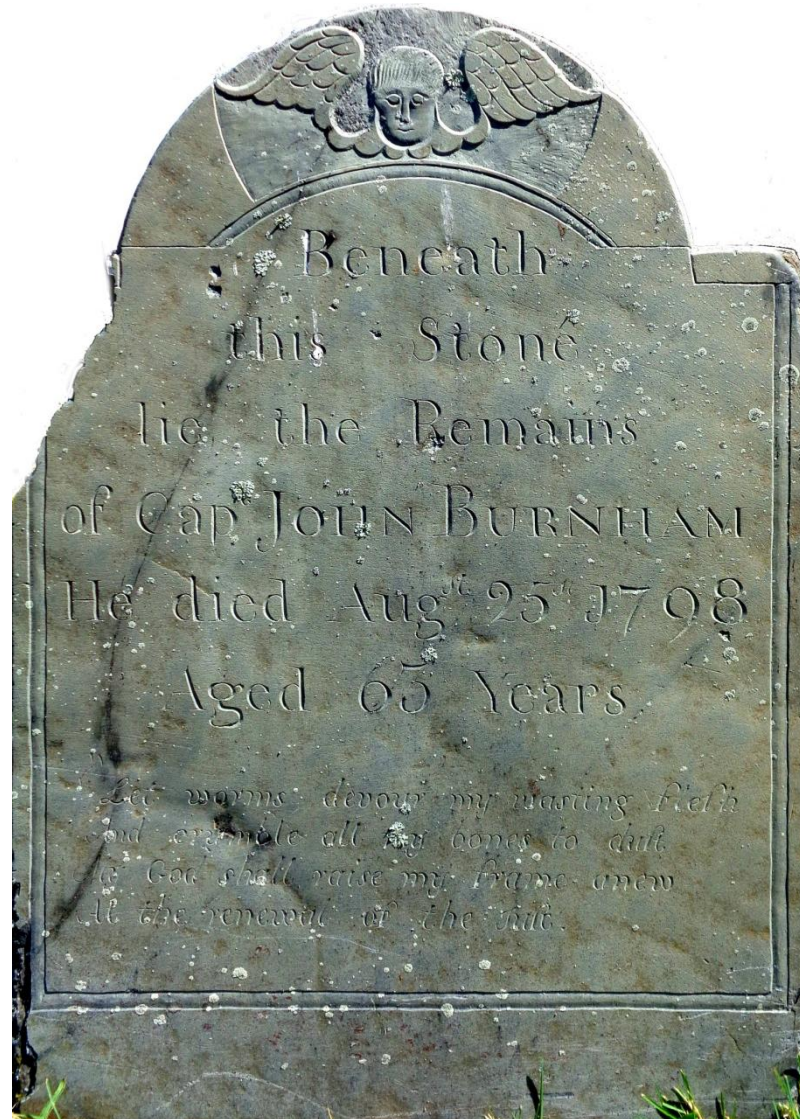 Beneath
this Stone
lie the Remains
of Cap JOHN BURNHAM
He died Augst 25th 1798
Aged 65 Years
Let worms devour my wasting fleſh
And crumble all my bones to duſt
God shall raise my frame anew
At the renewal of the juſt.